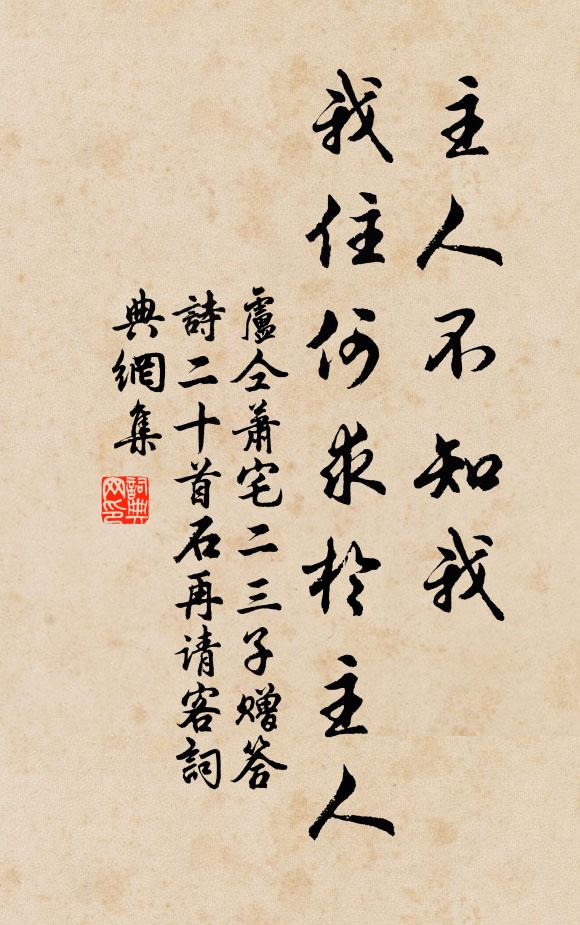 主人不知我
我住何求於主人
盧仝蕭宅二三子贈答
詩二十首石再请客詞
典網集
詞典
网印